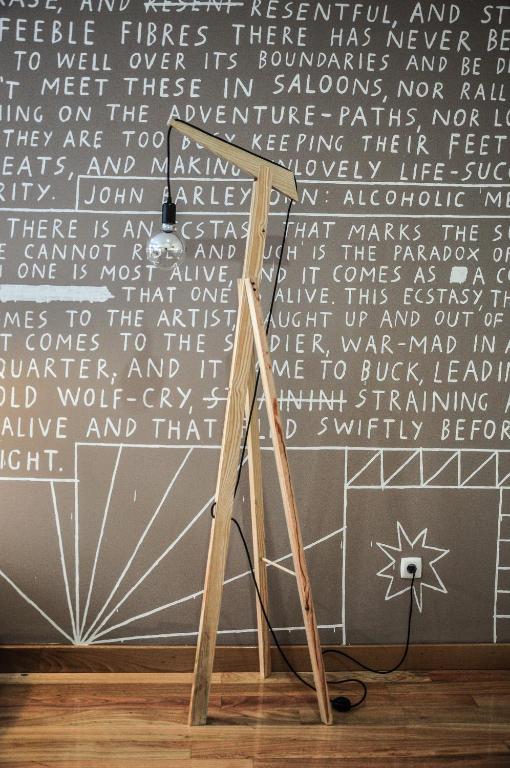 AND RESENT RESENTFUL, AND ST
FEEBLE FIBRES THERE HAS NEVER BE
TO WELL OVER ITS BOUNDARIES AND BE D
'T MEET THESE IN SALOONS, NOR RALL
ING ON THE ADVENTURE-PATHS, NOR LO
THEY ARE TOO BUSY KEEPING THEIR FEET
EATS, AND MAKING UNLOVELY LIFE-SUCC
RITY. JOHN BARLEYCORN: ALCOHOLIC ME
THERE IS AN ECSTASY THAT MARKS THE SU
CANNOT R AND SUCH IS THE PARADOX OF
ONE IS MOST ALIVE, AND IT COMES AS A CO
THAT ONE ALIVE. THIS ECSTASY, TH
OMES TO THE ARTIST, CAUGHT UP AND OUT OF
IT COMES TO THE SOLDIER, WAR-MAD IN A
QUARTER, AND IT CAME TO BUCK, LEADIN
OLD WOLF-CRY, STRAINING A
ALIVE AND THAT FLED SWIFTLY BEFOR
IGHT.